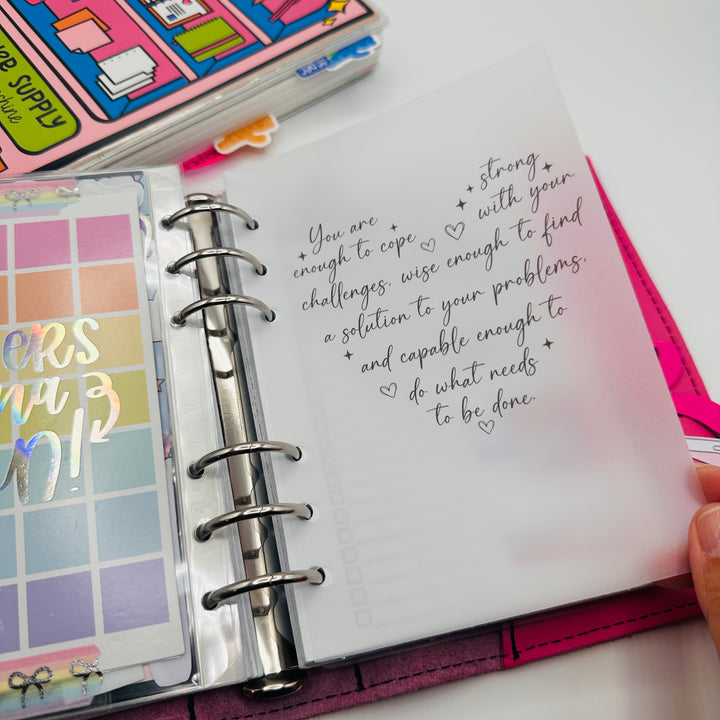 SUPPLY
You are strong
enough to cope with your
challenges, wise enough to find
a solution to your problems,
and capable enough to
do what needs
to be done.